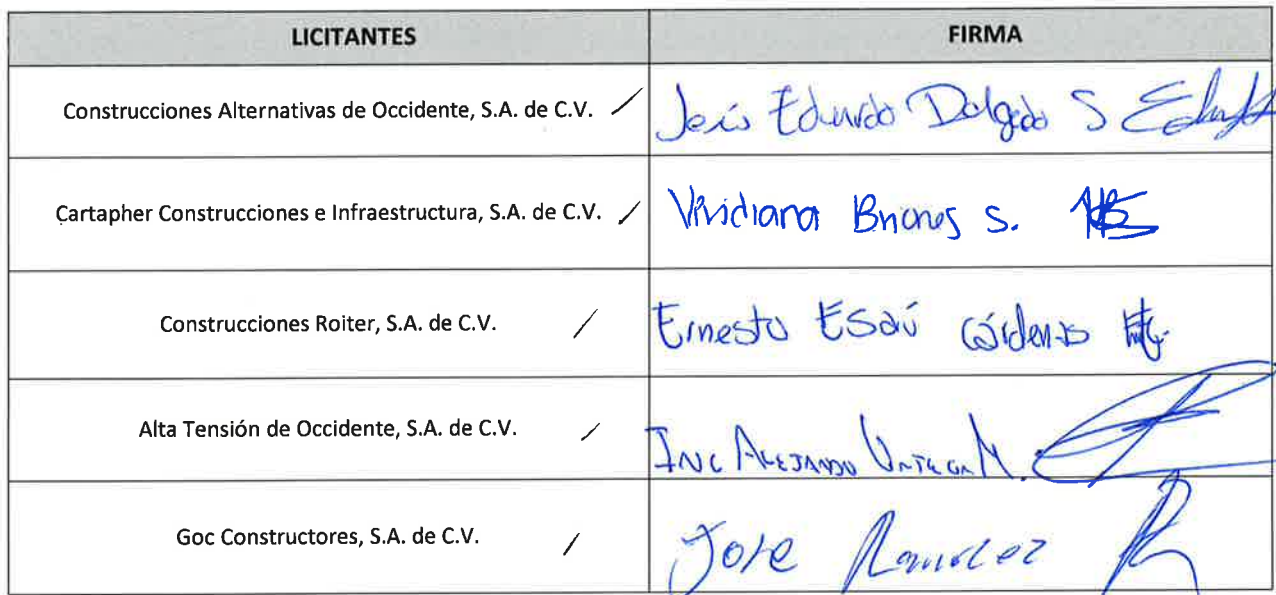 LICITANTES FIRMA
Construcciones Alternativas de Occidente, S.A. de C.V. / Jesús Eduardo Delgado S
Cartapher Construcciones e Infraestructura, S.A. de C.V. / Viridiana Briones S.
Construcciones Roiter, S.A. de C.V. / Ernesto Esaú Cárdenas
Alta Tensión de Occidente, S.A. de C.V. / Ing Alejandro M.
Goc Constructores, S.A. de C.V. / Jose Ramirez